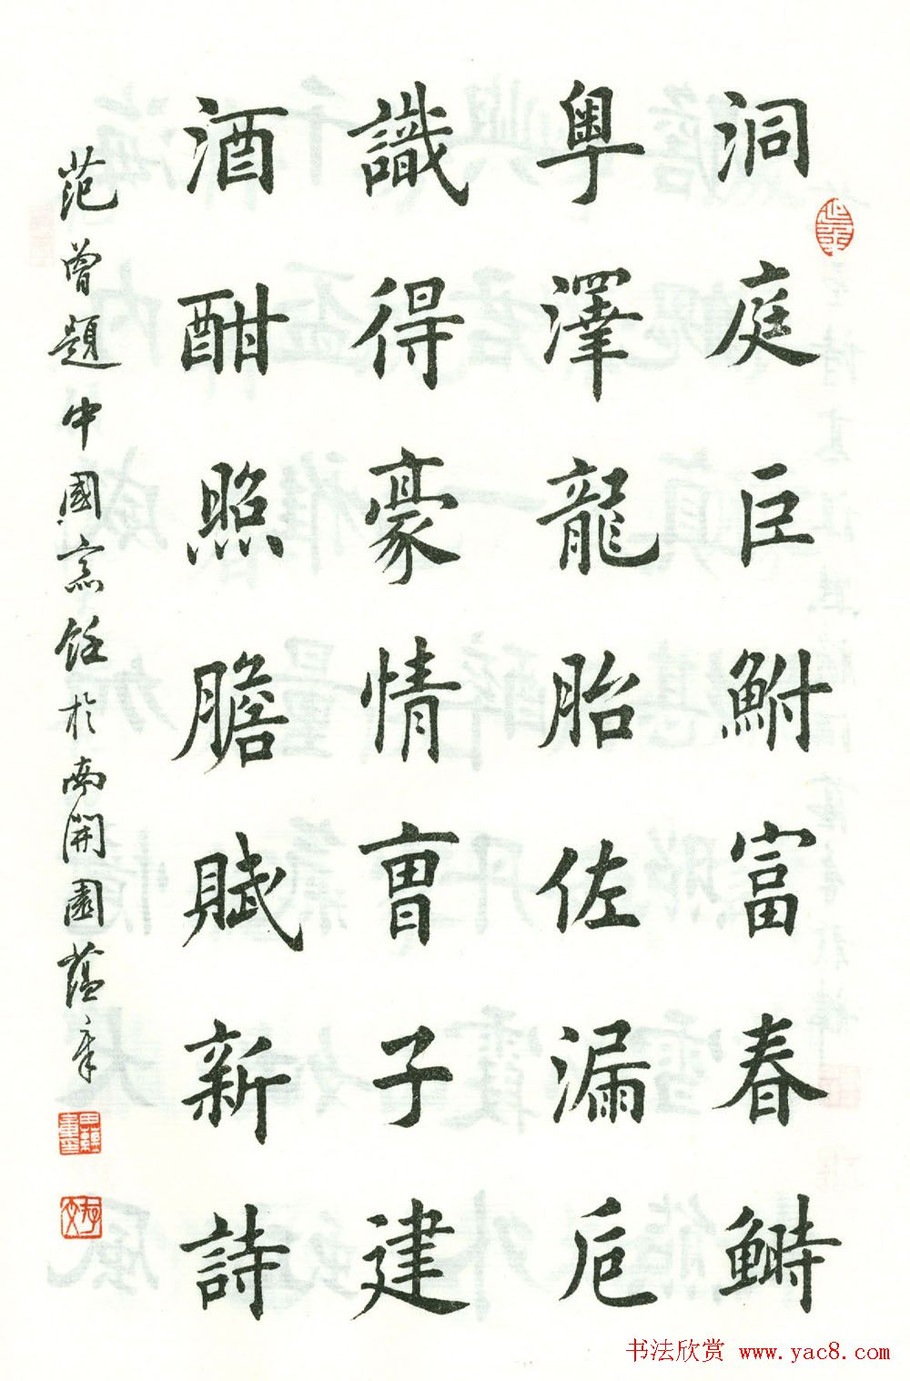 洞庭巨鮒富春鰣
粵澤龍胎佐漏卮
識得豪情曹子建
酒酣照膽賦新詩
范曾題中國烹飪於南開園蔭
書法欣赏 www.yac8.com